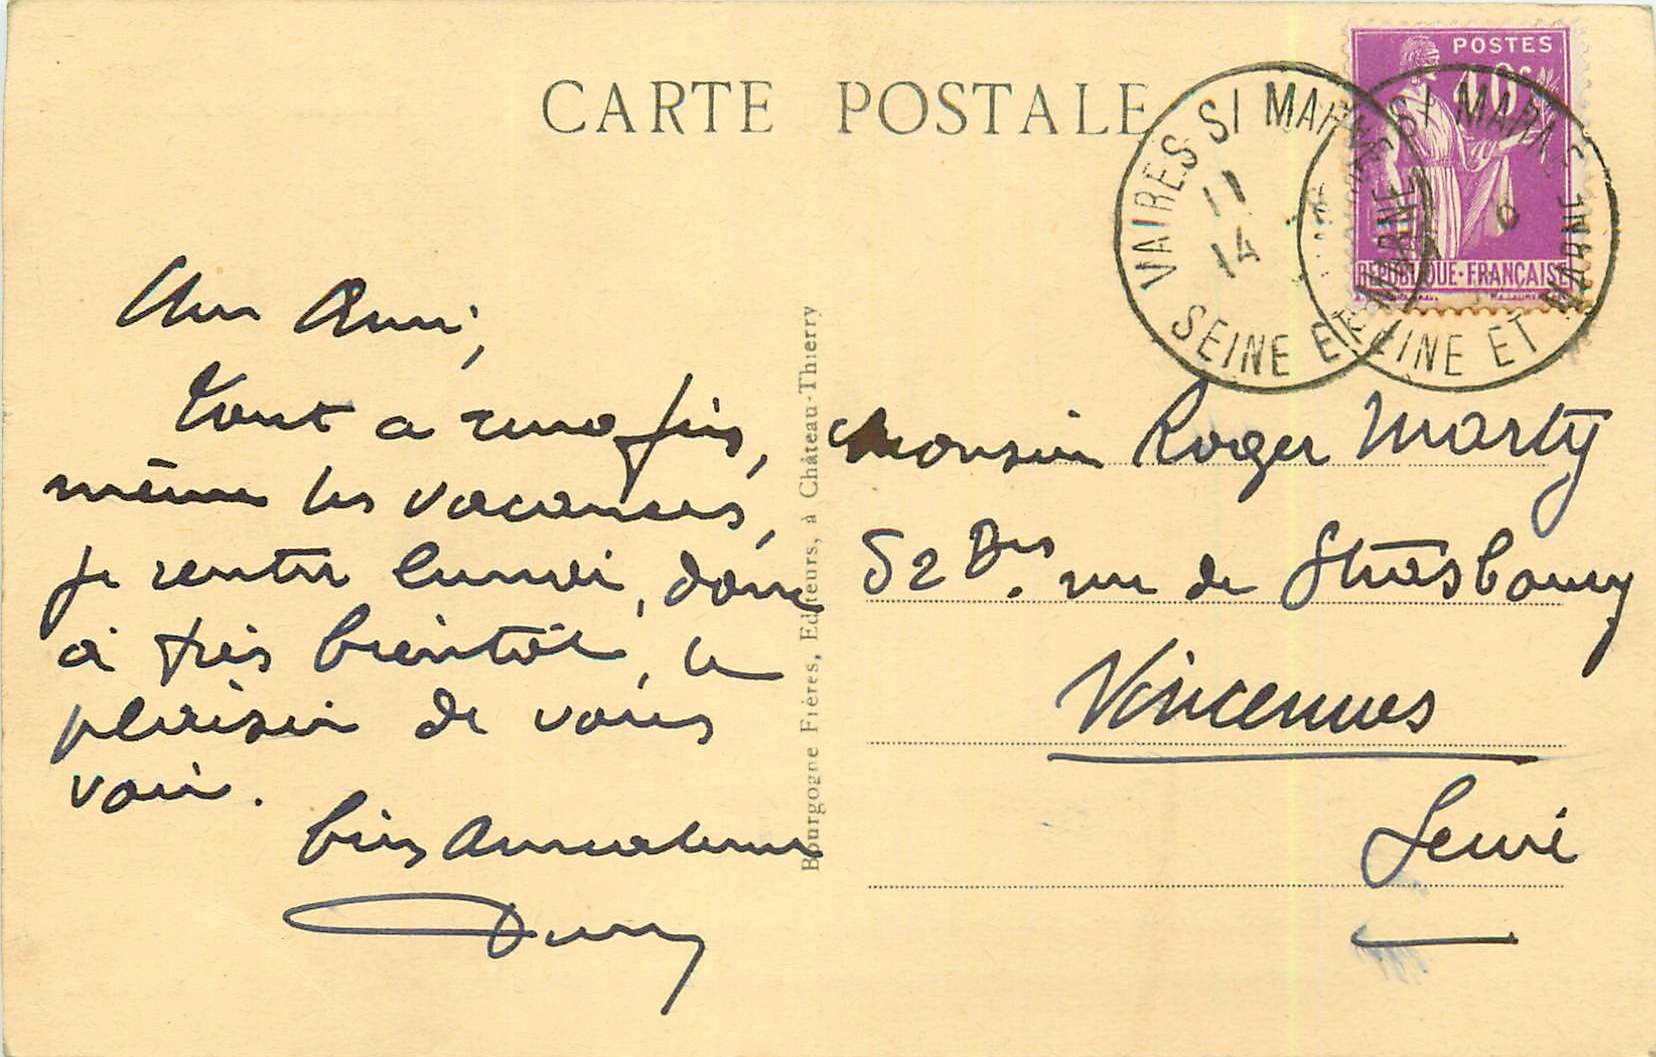 CARTE POSTALE
POSTES
REPUBLIQUE·FRANÇAISE
VAIRES S/ MARNE
11
14
SEINE ET MARNE
S/ MARNE
SEINE ET MARNE
Cher Ami,
Tout a une fin,
même les vacances,
je rentre lundi, donc
à très bientôt, le
plaisir de vous
voir.
bien amicalement
Bourgogne Frères, Editeurs, à Château-Thierry
Monsieur Roger Marty
52 Bis. rue de Strasbourg
Vincennes
Seine